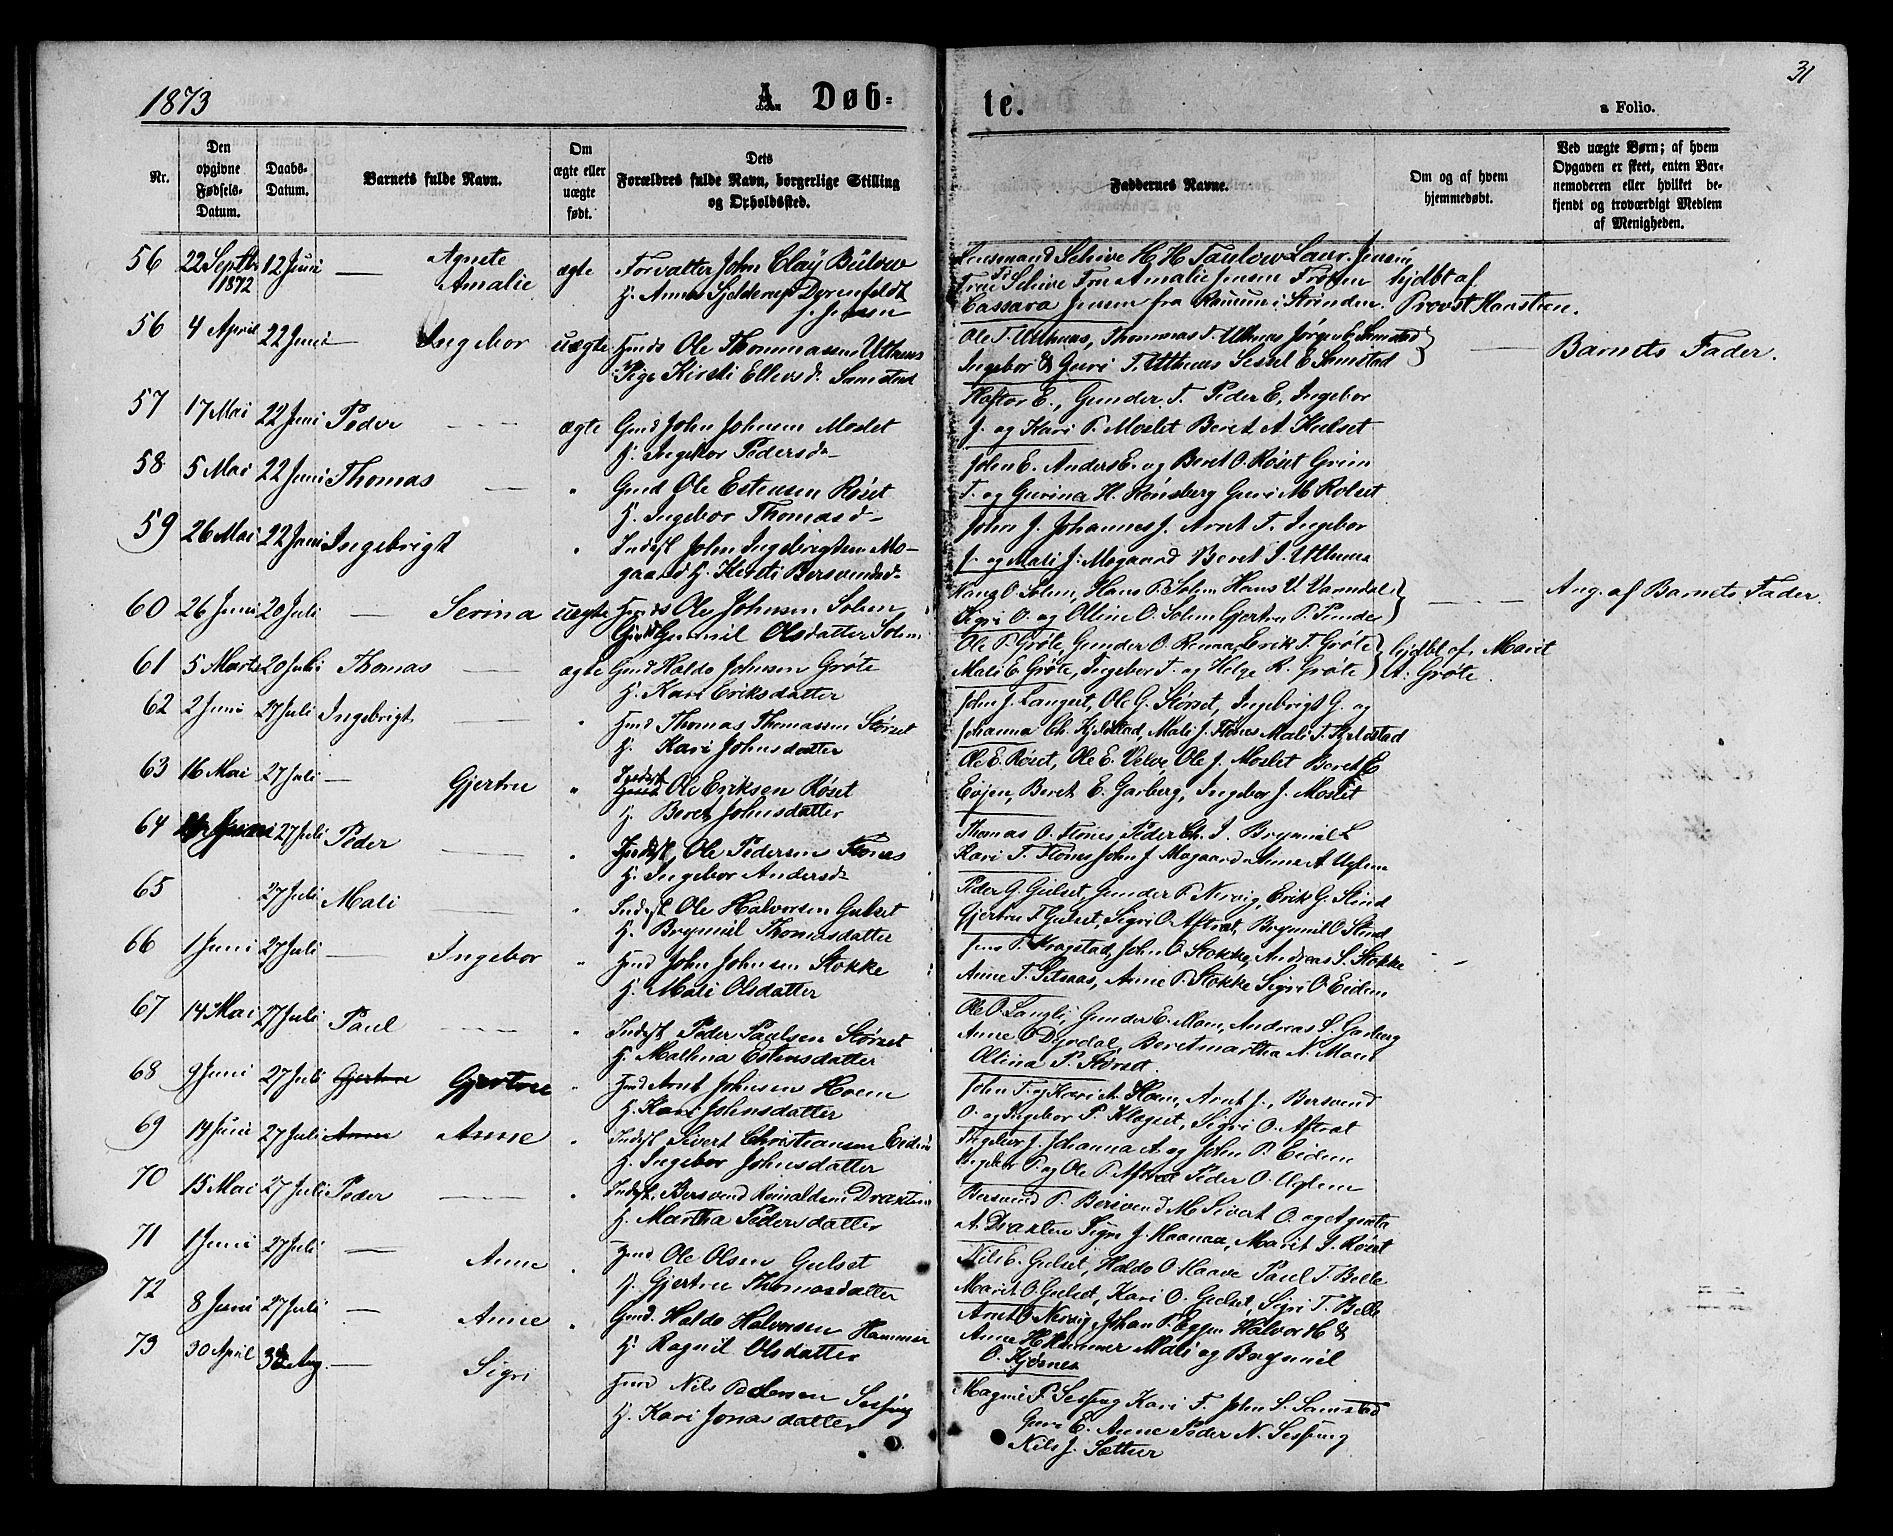 31
1873
A. Døb-
te.
a Folio.
Nr.
Den opgivne Fødsels-Datum.
Daabs-Datum.
Barnets fulde Navn.
Om ægte eller uægte født.
Dets Forældres fulde Navn, borgerlige Stilling og Opholdssted.
Faddernes Navne.
Om og af hvem hjemmedøbt.
Ved uægte Børn; af hvem Opgaven er skeet, enten Barnemoderen eller hvilket bekjendt og troværdigt Medlem af Menigheden.
56 22 Septbr 1872 12 Juni — Agnete Amalie ægte Forvalter John Clay Bülow
H. Anna Dorenfeldt f. Jensen
Lensmand Schive H. H. Taulow Laur. Jensen,
Fru Schive Fru Amalie Jensen Frøken
Cassara Jensen fra i Strinden
hjdbt af Provst Hanstein.
56 4 April 22 Juni — Ingebor uægte Ole Thommassen Uthuus
Pige Kirsti Ellevsd. Samstad
Ole T. Uthuus, Thommas T. Uthuus Jørgen E. Samstad
Ingebor & Guri T. Uthuus Sissel E. Samstad
— Barnets Fader.
57 17 Mai 22 Juni Peder — ægte Gmd John Johnsen Moslet
H. Ingebor Pedersd.
Haftor E., Gunder T. Peder E. Ingebor
J. og Kari P. Moslet Beret A. Hulset
58 5 Mai 22 Juni Thomas — " Gmd Ole Estensen Røset
H. Ingebor Thomasd.
John E. Anders E. og Beret O. Røset
T. og Gurina H. Rønsberg Guri M. Rolset
59 26 Mai 22 Juni Ingebrigt " Inderst John Ingebrigtsen Mo-
gaard H. Kirsti Bersvendsd.
John J. Johannes J. Arnt T. Ingebor
J. og Mali J. Mogaard Beret J. Uthuus
60 26 Juni 20 Juli — Serina uægte Ole Johnsen Solem
Gunnil Olsdatter Solem
O. Solem, Hans P. Solem Hans V. Vamdal
Sigri O. og Olline O. Solem Gjertru P.
— Ang. af Barnets Fader.
61 5 Marts 20 Juli Thomas — ægte Gmd Haldo Johnsen Grøte
H. Kari Eriksdatter
Ole P. Grøte, Gunder O. Erik T. Grøte
Mali E. Grøte, Ingebor T. og Helge R. Grøte
hjdbt af Marit A. Grøte.
62 2 Juni 27 Juli Ingebrigt — " Hmd Thomas Thomassen Størset
H. Kari Johnsdatter
John J. Langset, Ole G. Størset, Ingebrigt G. og
Johanna Ch. Kjelstad, Mali J. Flønes Mali T. Kjelstad
63 16 Mai 27 Juli — Gjertru " Inderst Ole Eriksen Røset
H. Beret Johnsdatter
Ole E. Røset, Ole E. Velve Ole J. Moslet Beret E
Evjen, Beret E. Garberg, Ingebor J. Moslet
64 27 Juli Peder — " Inderst Ole Pedersen Flønes
H. Ingebor Andersd.
Thomas O. Flønes Peder Ch. J. Brynnil L
Kari T. Flønes John J. Mogaard Anne A. Uglem
65 27 Juli Mali — " Inderst Ole Halvorsen Gulset
H. Brynnil Thomasdatter
Peder G. Gulset, Gunder P. Nervig, Erik G. Slind
Gjertru T. Gulset, Sigri O. Aftret, Brynnil O. Slind
66 1 Juni 27 Juli — Ingebor " Hmd John Johnsen Stokke
H. Mali Olsdatter
Jens P. Kragstad, John O. Stokke, Andreas S. Stokke
Anne T. Setsaas, Anne P. Stokke Sigri O. Eidem
67 14 Mai 27 Juli Paul — " Inderst Peder Paulsen Størset
H. Mallena Estensdatter
Ole O. Langli, Gunder E. Moen, Andreas S. Garberg
Anne O. Dyrdal, Beretmartha N. Moen
Ollina P. Størset.
68 9 Juni 27 Juli Gjertrue Gjertrue " Hmd Arnt Johnsen Hoem
H. Kari Johnsdatter
John T. og Kari A. Hoem, Arnt J., Bersvend
O. og Ingebor P. Klegset, Sigri O. Aftret
69 14 Juni 27 Juli Anne Anne " Inderst Sivert Christiansen Eidem
H. Ingebor Johnsdatter
Ingebor J. Johanna A. og John P. Eidem
Ingebor P. og Ole P. Aftret Peder O. Uglem
70 15 Mai 27 Juli Peder — " Inderst Bersvend Reinaldsen Draxten
H. Martha Pedersdatter
Bersvend P. Bersvend M. Sivert O. og Agneta
A. Draxten Sigri J. Haanaa, Marit J. Røset
71 1 Juni 27 Juli — Anne " Hmd Ole Olsen Gulset
H. Gjertru Thomasdatter
Nils E. Gulset, Haldo O. Haave Paul T. Belle
Marit O. Gulset, Kari O. Gulset, Sigri T. Belle
72 8 Juni 27 Juli — Anne " Gmd. Haldo Halvorsen Hammer
H. Ragnil Olsdatter
Arnt O. Nervig, Johan P. Eggen Halvor H. &
Anne H. Hammer Mali og Brynnil
O. Kjøsnes
73 30 April 3 Aug. — Sigri Hmd Nils Pedersen Sesseng
H. Kari Jonasdatter
Magne P. Sesseng Kari F. John S. Samstad
Guri E. Anne Peder N. Sesseng
Nils J. Sætter